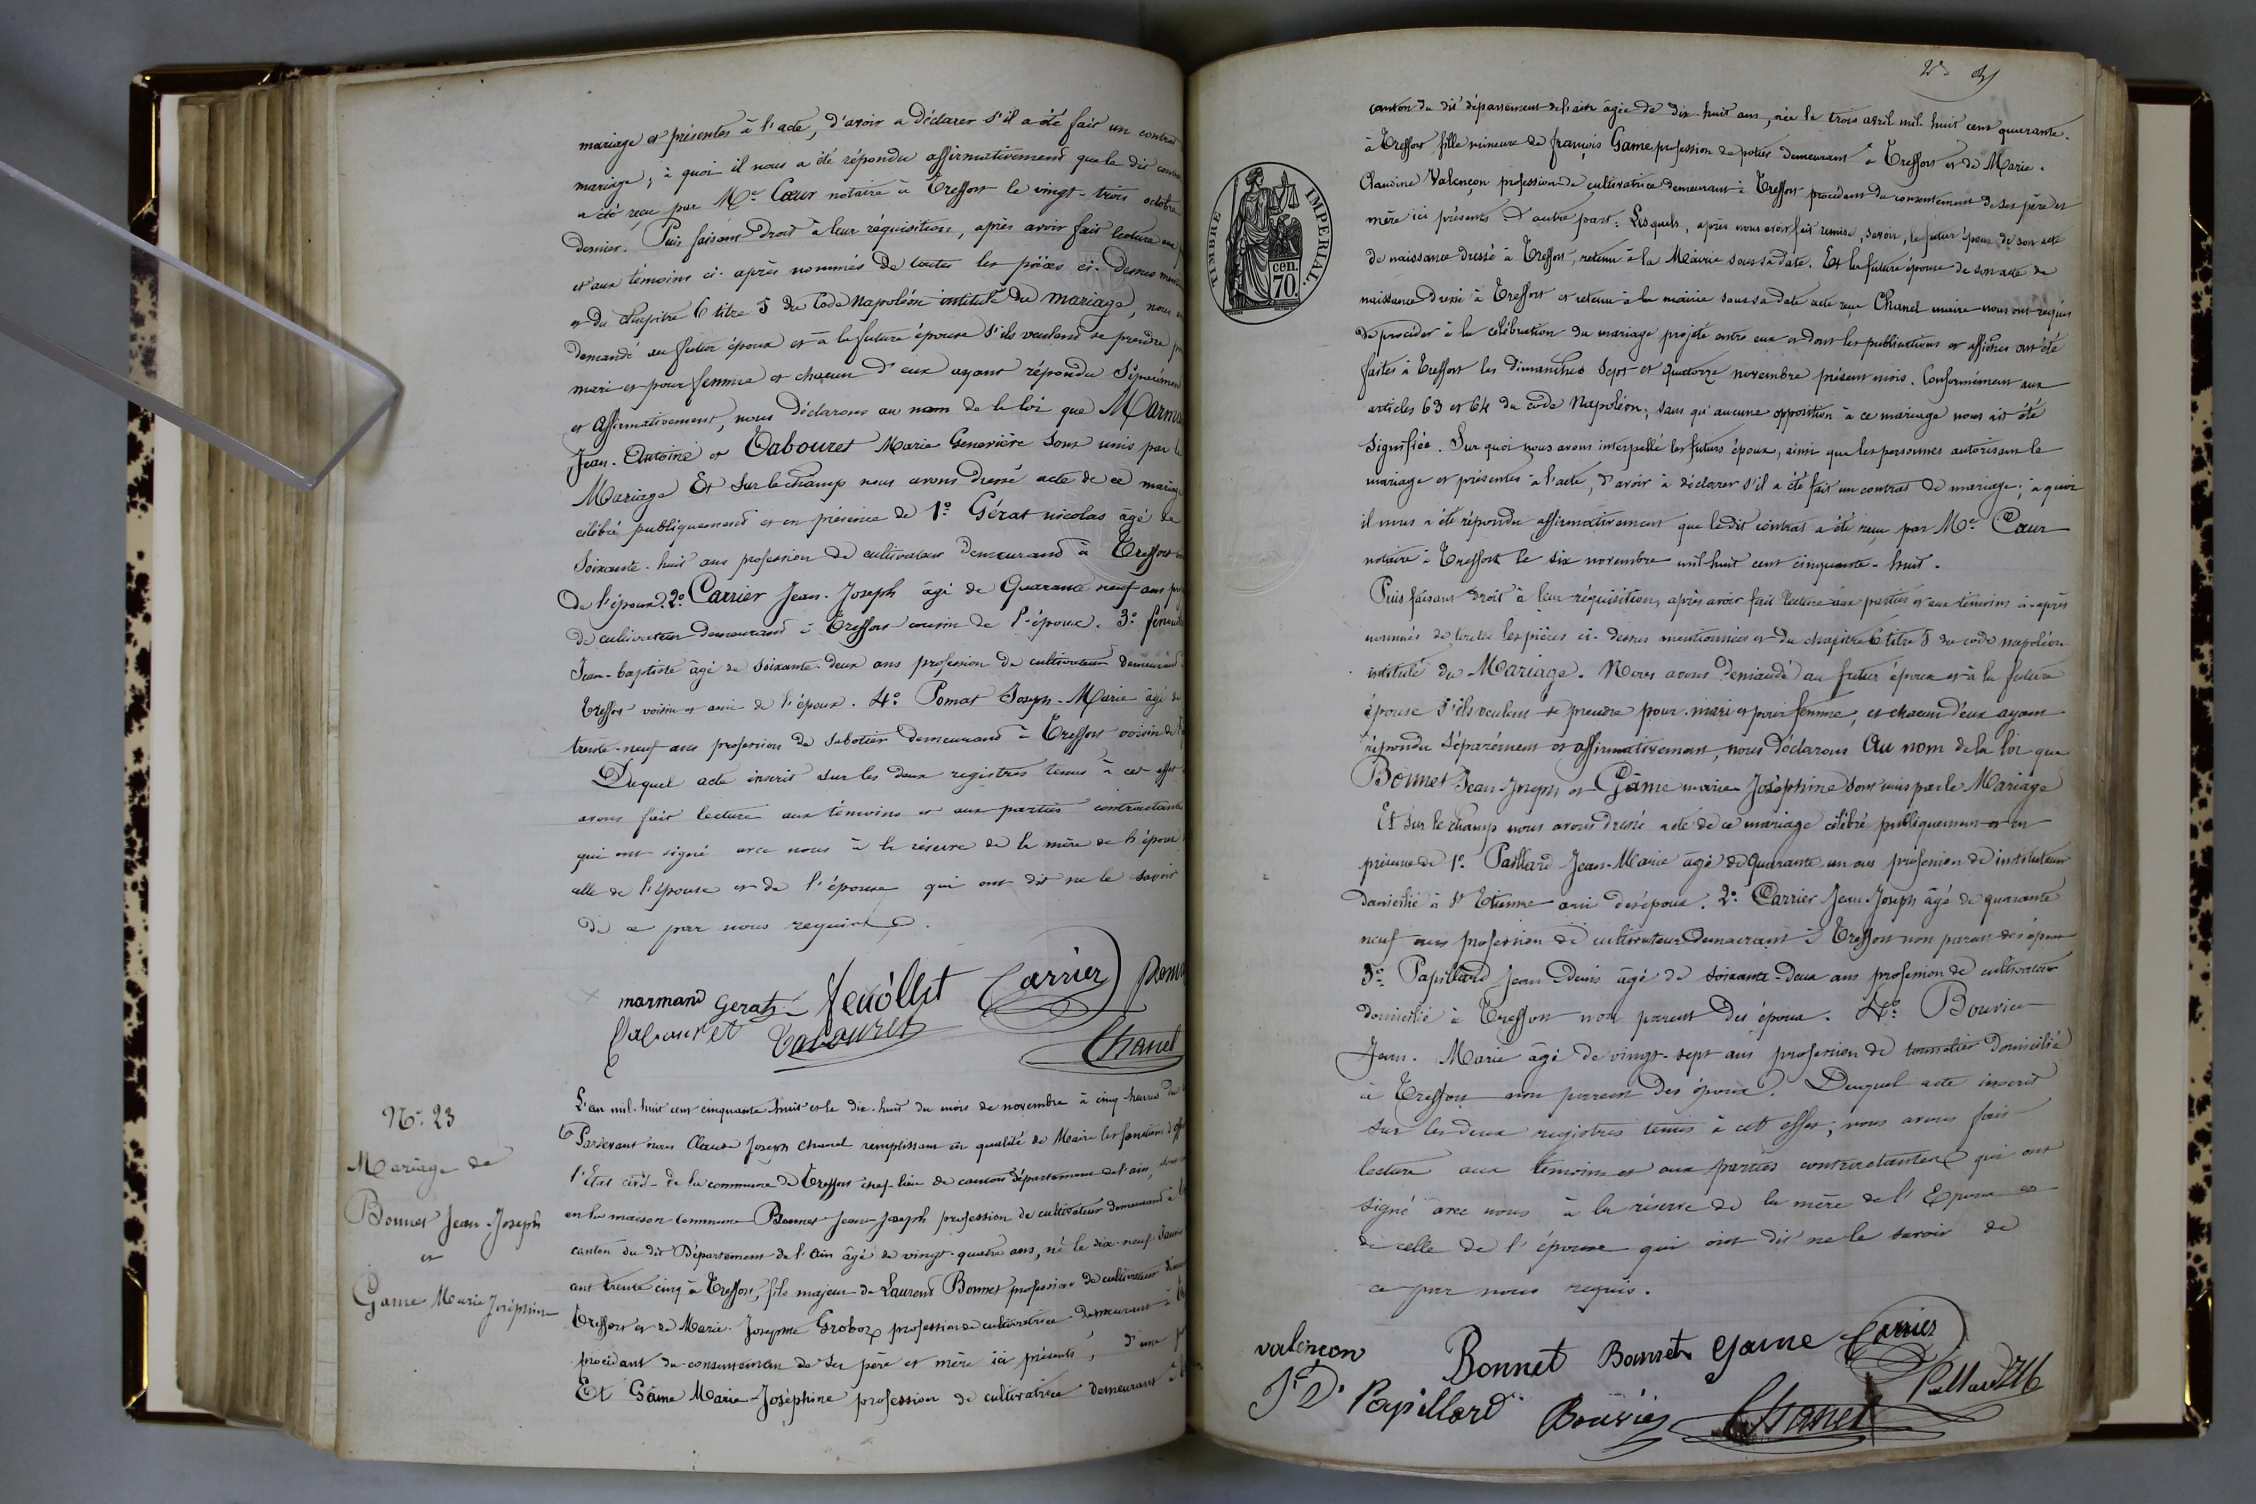 mariage et présentes à l'acte, d'avoir a déclarer s'il a été fait un contrat
mariage; à quoi il nous a été répondu affirmativement que le dit
a été reçu par Me Cœur notaire à Treffort le vingt-trois octobre
dernier. Puis faisant droit à leur réquisition, après avoir fait lecture aux
et aux témoins ci-après nommés de toutes les pièces ci-dessus
et du chapitre 6 titre 5 du Code Napoléon intitulé du mariage, nous
demandé au futur époux et à la future épouse s'ils veulent se prendre
mari et pour femme et chacun d'eux ayant répondu séparément
et affirmativement, nous déclarons au nom de la loi que
Jean-Antoine et Tabouret Marie Geneviève sont unis par le
Mariage Et sur le champ nous avons dressé acte de ce mariage
célébré publiquement et en présence de 1° Gérat nicolas âgé de
soixante-huit ans profession de cultivateur demeurand à Treffort
de l'époux. 2° Carrier Jean-Joseph âgé de Quarante neuf ans
de cultivateur demeurand à Treffort cousin de l'époux. 3°
Jean-baptiste âgé de soixante-deux ans profession de cultivateur demeurand
Treffort voisin et ami de l'époux. 4° Pomat Joseph-Marie âgé de
trente-neuf ans profession de sabotier demeurand à Treffort voisin de
Duquel acte inscrit sur les deux registres tenus à cet effet
avons fait lecture aux témoins et aux parties contractantes
qui ont signé avec nous à la réserve de la mère de l'époux
celle de l'épouse et de l'épouse qui ont dit ne le savoir
de ce par nous requis.
marmand Gerat Carrier
Tabouret Tabouret Chanel
N° 23
Mariage de
Bonnet Jean-Joseph
et
Game Marie Joséphine
L'an mil-huit cent cinquante-huit et le dix-huit du mois de novembre à cinq heures du
Pardevant nous Claude Joseph Chanel remplissant en qualité de Maire les fonctions d'
l'État civil de la commune de Treffort chef-lieu de canton département de l'ain,
en la maison commune Bonnet Jean-Joseph profession de cultivateur demeurand à
canton du dit Département de l'Ain âgé de vingt-quatre ans, né le dix-neuf
cent trente cinq à Treffort, fils majeur de Laurent Bonnet profession de cultivateur
Treffort et de Marie-Josephte Groboz profession de cultivatrice demeurant à
procédant du consentement de ses père et mère ici présents, d'une
Et Game Marie-Joséphine profession de cultivatrice demeurant à
canton du dit département de l'ain âgée de dix-huit ans, née le trois avril mil-huit cent quarante.
à Treffort fille mineure de françois Game profession de potier demeurant à Treffort et de Marie-
Claudine Valençon profession de cultivatrice demeurant à Treffort procédant du consentement de ses père et
mère ici présents d'autre part: Lesquels, après nous avoir fait remise, savoir, le futur époux de son acte
de naissance dressé à Treffort, retenu à la Mairie sous sa date. Et la future épouse de son acte de
naissance dressé à Treffort et retenu à la mairie sous sa date acte reçu Chanel maire nous ont requis
de procéder à la célébration du mariage projeté entre eux et dont les publications et affiches ont été
faites à Treffort les dimanches sept et quatorze novembre présent mois. Conformément aux
articles 63 et 64 du code Napoléon, sans qu'aucune opposition à ce mariage nous ait été
signifiée. Sur quoi nous avons interpellé les futurs époux, ainsi que les personnes autorisant le
mariage et présentes à l'acte, d'avoir à déclarer s'il a été fait un contrat de mariage; à quoi
il nous a été répondu affirmativement que le dit contrat a été reçu par Me Cœur
notaire à Treffort le six novembre mil huit cent cinquante-huit.
Puis faisant droit à leur réquisition, après avoir fait lecture aux parties et aux témoins ci-après
nommés de toutes les pièces ci-dessus mentionnées et du chapitre 6 titre 5 du code napoléon
intitulé du Mariage. Nous avons demandé au futur époux et à la future
épouse s'ils veulent se prendre pour mari et pour femme, et chacun d'eux ayant
répondu séparément et affirmativement, nous déclarons Au nom de la loi que
Bonnet Jean-Joseph et Game marie Joséphine sont unis par le Mariage
Et sur le champ nous avons dressé acte de ce mariage célébré publiquement et en
présence de 1° Paillard Jean-Marie âgé de Quarante un ans profession de instituteur
domicilié à St Etienne ami des époux. 2° Carrier Jean-Joseph âgé de quarante
neuf ans profession de cultivateur demeurant à Treffort non parent des époux
3° Papillard Jean Denis âgé de soixante-deux ans profession de cultivateur
domicilié à Treffort non parent des époux. 4° Bouvier
Jean-Marie âgé de vingt-sept ans profession de tonnelier domicilié
à Treffort non parent des époux. Duquel acte inscrit
sur les deux registres tenus à cet effet, nous avons fait
lecture aux témoins et aux parties contractantes qui ont
signé avec nous à la réserve de la mère de l'Epoux et
de celle de l'épouse qui ont dit ne le savoir de
ce par nous requis.
TIMBRE IMPERIAL.
cen.
70.
valençon Bonnet Bonnet Game Carrier
Jn Ds Papillard Bouvier Chanel Paillard